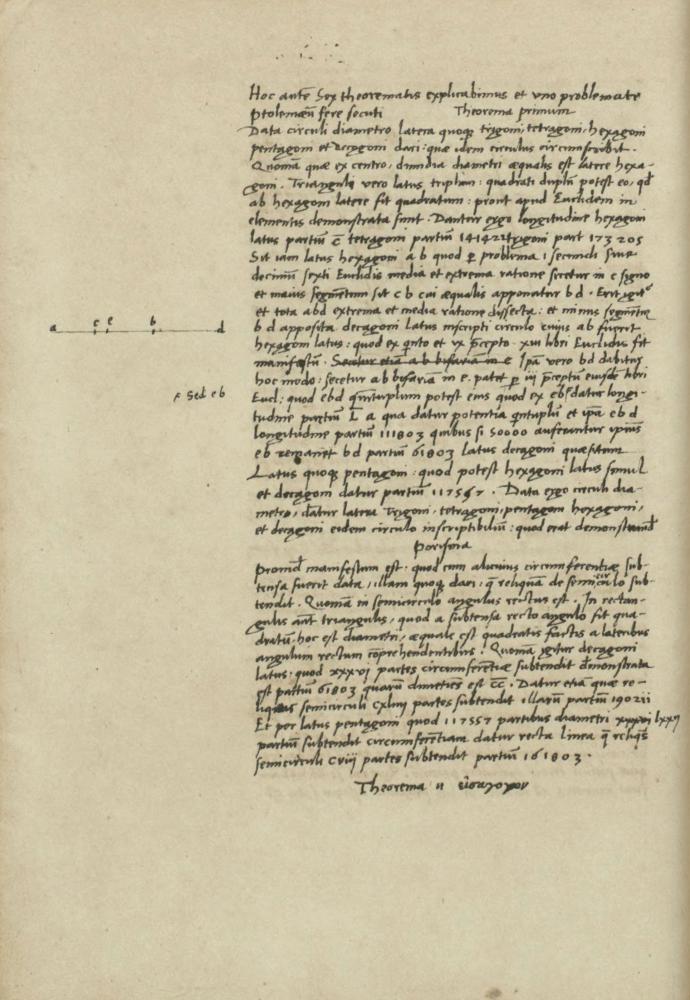 Hoc autē Sex theorematis explicabimus et vno problemate
ptolemæū fere secuti Theorema primum
Data circuli diametro latera quoqȝ trigoni, tetragoni, hexagoni
pentagoni et decagoni dari: quæ idem circulus circumscribit.
Quoniā quæ ex centro, dimidia diametri æqualis est lateri hexa-
goni. Trianguli vero latus triplum: quadrati duplū potest eo, qd
ab hexagoni latere fit quadratum: prout apud Euclidem in
elementis demonstrata sunt. Dantur ergo longitudine hexagoni
latus partiū c̄ tetragoni partiū 141422 trigoni part 173205
Sit iam latus hexagoni a b quod ꝑ problema i secundi siue
decimū sexti Euclidis media et extrema ratione secetur in c signo
et maius segmentum sit c b cui æqualis apponatur b d. Erit igitᵉ
et tota abd extrema et media ratione dissecta: et minus segmentū
b d apposita decagoni latus inscripti circulo cuius ab fuerit
hexagoni latus: quod ex qnto et ix pręcepto xiii libri Euclidis fit
manifestū. Secetur etiā a b bifariā in e Ipā vero bd dabitur
hoc modo: secetur ab bifariā in e. patet ꝑ iij pręceptū eiusdē libri
Eucl: quod ebd quintuplum potest eius quod ex eb datur longi-
tudine partiū L a qua datur potentia quintupli et ipā e b d
longitudine partiū 111803 quibus si 50000 auferantur ipsius
eb remanet bd partiū 61803 latus decagoni quæsitum
Latus quoqȝ pentagoni: quod potest hexagoni latus simul
et decagoni datur partiū 117557. Data ergo circuli dia-
metro, datur latera trigoni, tetragoni, pentagoni hexagoni,
et decagoni eidem circulo inscriptibiliū: quod erat demonstrand
porisma
Proind manifestum est. quod cum alicuius circumferentiæ sub-
tensa fuerit data, illam quoqȝ dari, q̄ reliquā de semicirculo sub-
tendit. Quoniā in semicirculo angulus rectus est. In rectan-
gulis aut triangulis, quod a subtensa recto angulo fit qua-
dratū, hoc est diametri, æquale est quadratis factis a lateribus
angulum rectum cōprehendentibus. Quoniā igitur decagoni
latus. quod xxxvi partes circumferentiæ subtendit demonstrata
est partiū 61803 quarū dimetiens est cc̄. Datur etiā quæ re-
liquas semicirculi cxliiij partes subtendit illarū partiū 190211
Et per latus pentagoni quod 117557 partibus diametri xxxvi lxxij
partiū subtendit circumferentiam datur recta linea q̄ reliqs
semicirculi cviij partes subtendit partiū 161803.
Theorema ii εἰσαγωγον
a c e b d
f sed eb